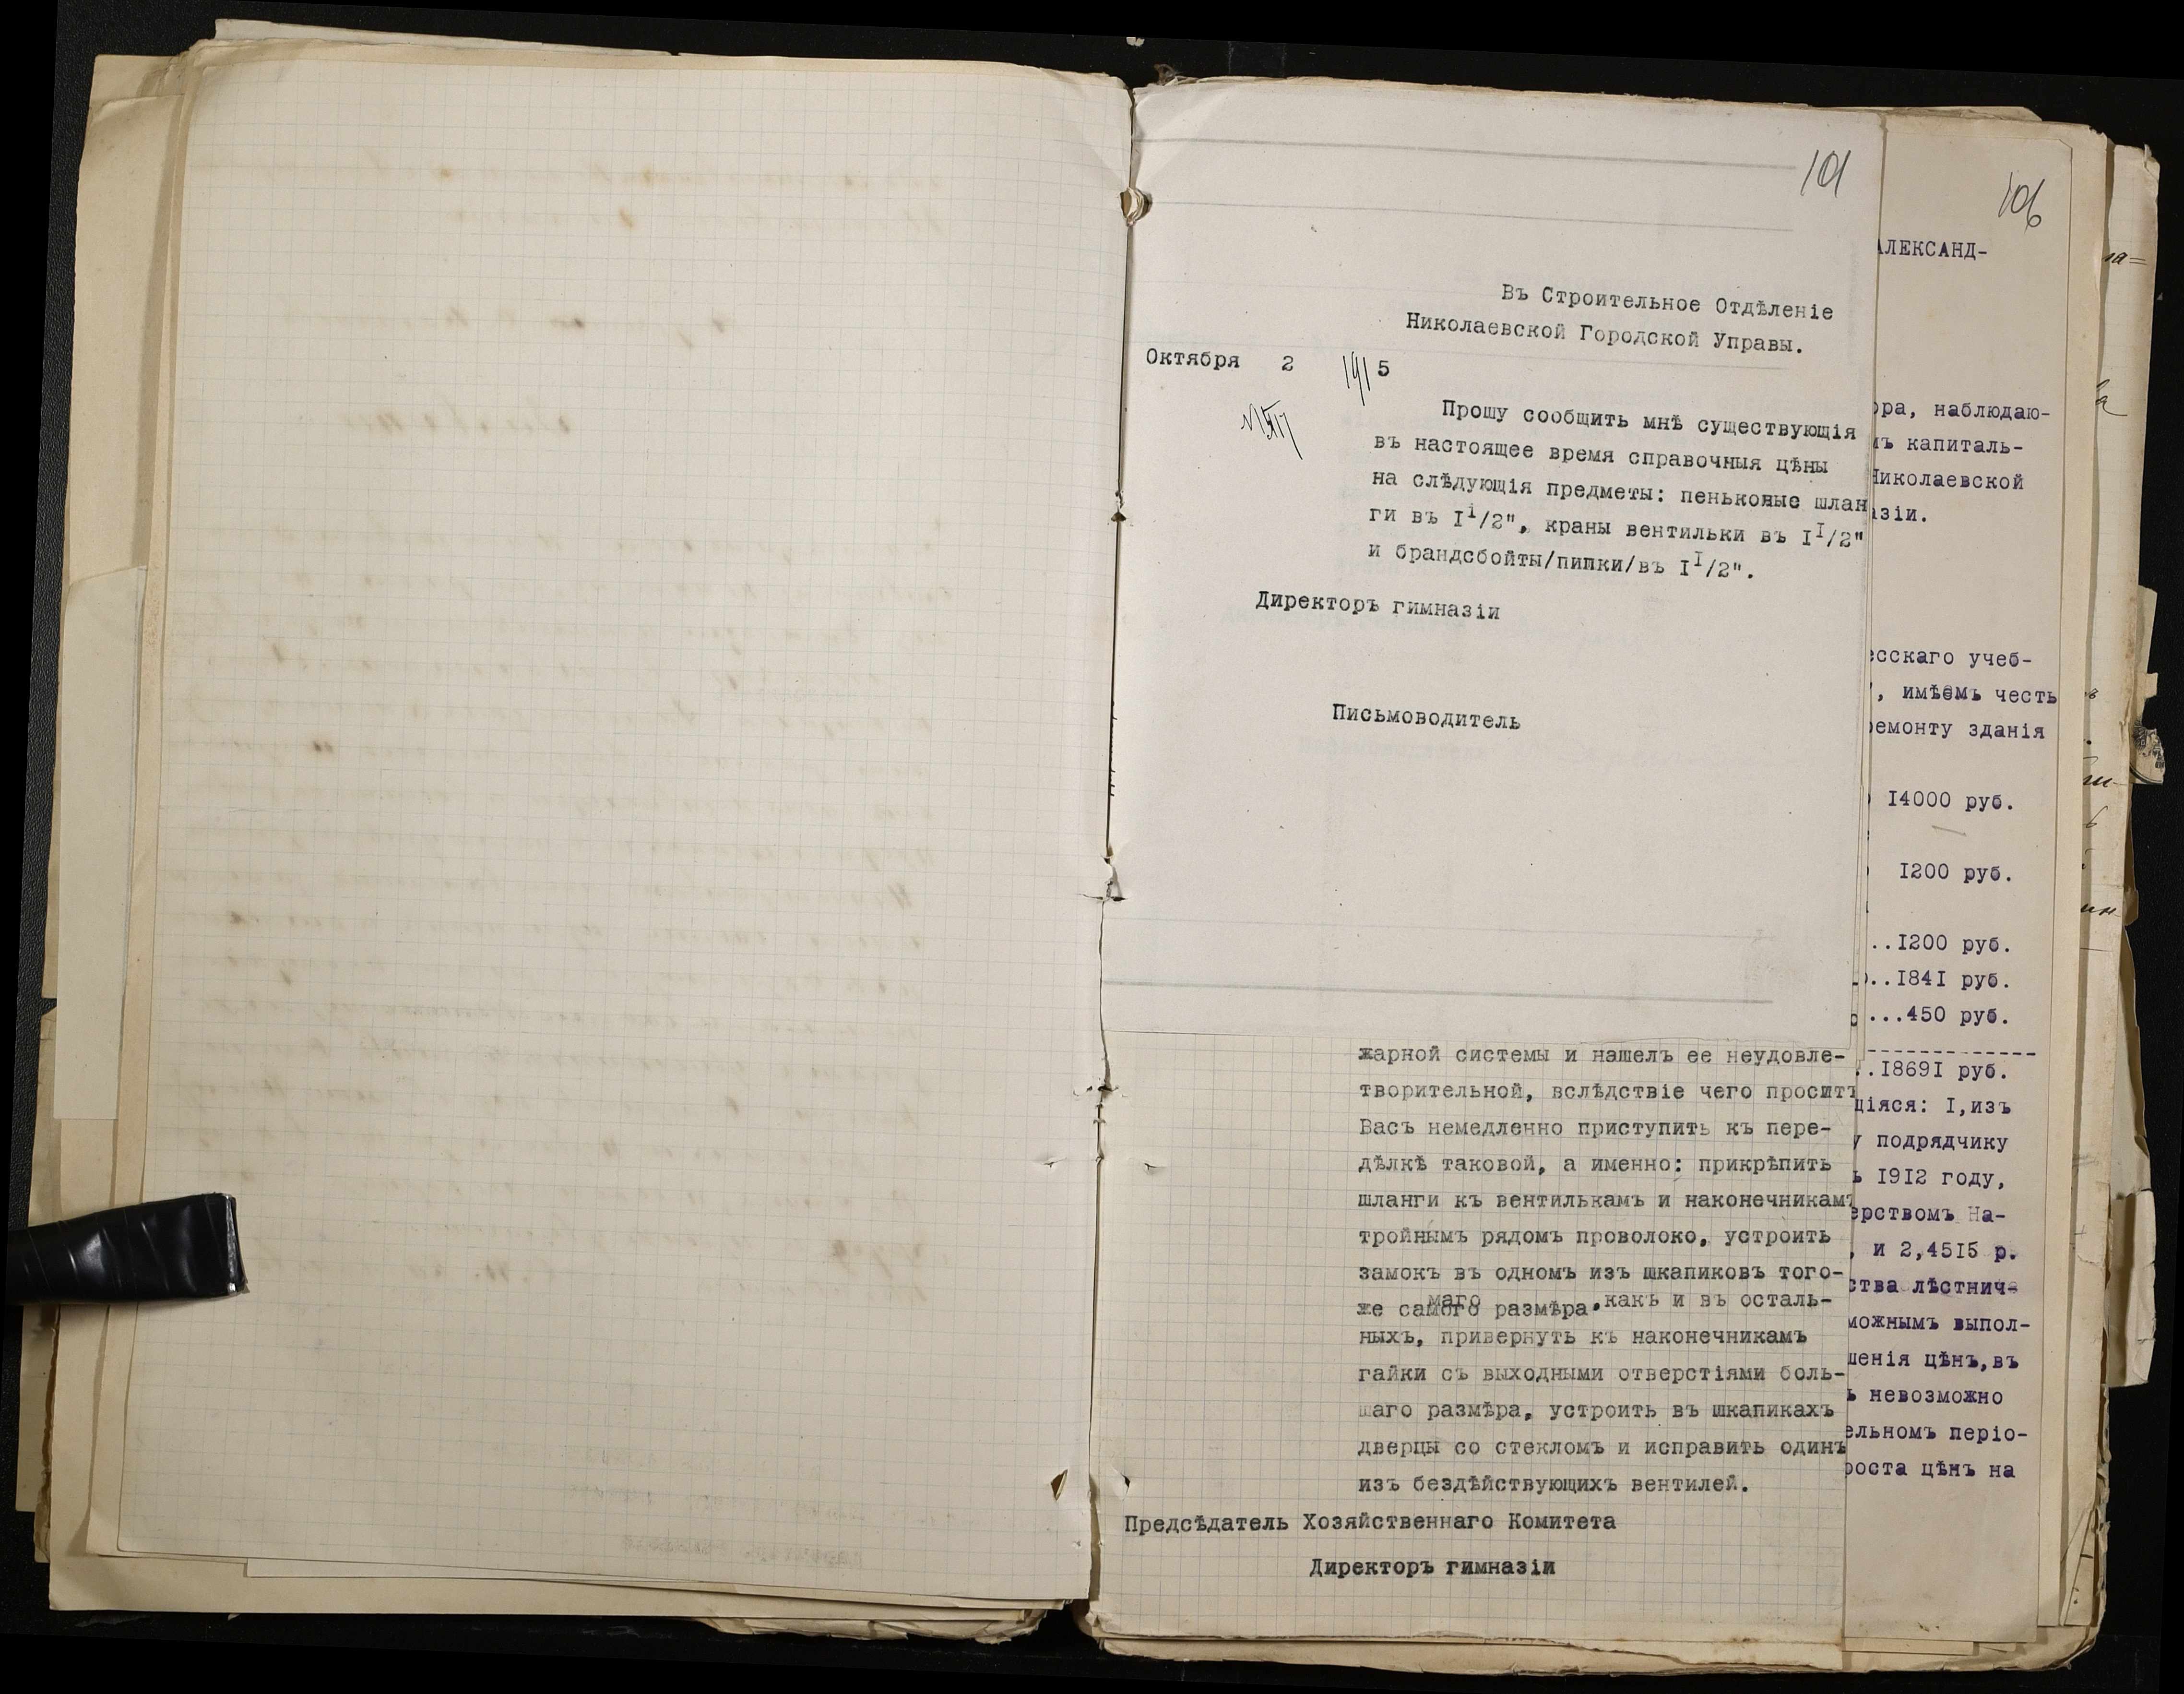 101
Въ Строительное Отдѣленіе
Николаевской Городской Управы.
Октября 2 1915
Прошу сообщить мнѣ существующія
въ настоящее время справочныя цѣны
на слѣдующія предметы: пеньковые шлан
ги въ I1/2", краны вентильки въ II/2"
и брандсбойты/пипки/въ II/2".
Директоръ гимназіи
Письмоводитель
жарной системы и нашелъ ее неудовле-
творительной, вслѣдствіе чего проситъ
Васъ немедленно приступить къ пере-
дѣлкѣ таковой, а именно: прикрѣпить
шланги къ вентилькамъ и наконечникамъ
тройнымъ рядомъ проволоко, устроить
замокъ въ одномъ изъ шкапиковъ того-
маго
же самого размѣра, какъ и въ осталь-
ныхъ, привернуть къ наконечникамъ
гайки съ выходными отверстіями боль-
шаго размѣра, устроить въ шкапикахъ
дверцы со стекломъ и исправить одинъ
изъ бездѣйствующихъ вентилей.
Предсѣдатель Хозяйственнаго Комитета
Директоръ гимназіи
106
АЛЕКСАНД-
ора, наблюдаю-
мъ капиталь-
Николаевской
азіи.
есскаго учеб-
, имѣемъ честь
ремонту зданія
14000 руб.
1200 руб.
..1200 руб.
..1841 руб.
...450 руб.
-------------
..18691 руб.
щіяся: I,изъ
у подрядчику
ъ 1912 году,
ерствомъ На-
, и 2,4515 р.
ства лѣстнич-
можнымъ выпол-
шенія цѣнъ,въ
ъ невозможно
ельномъ періо-
роста цѣнъ на